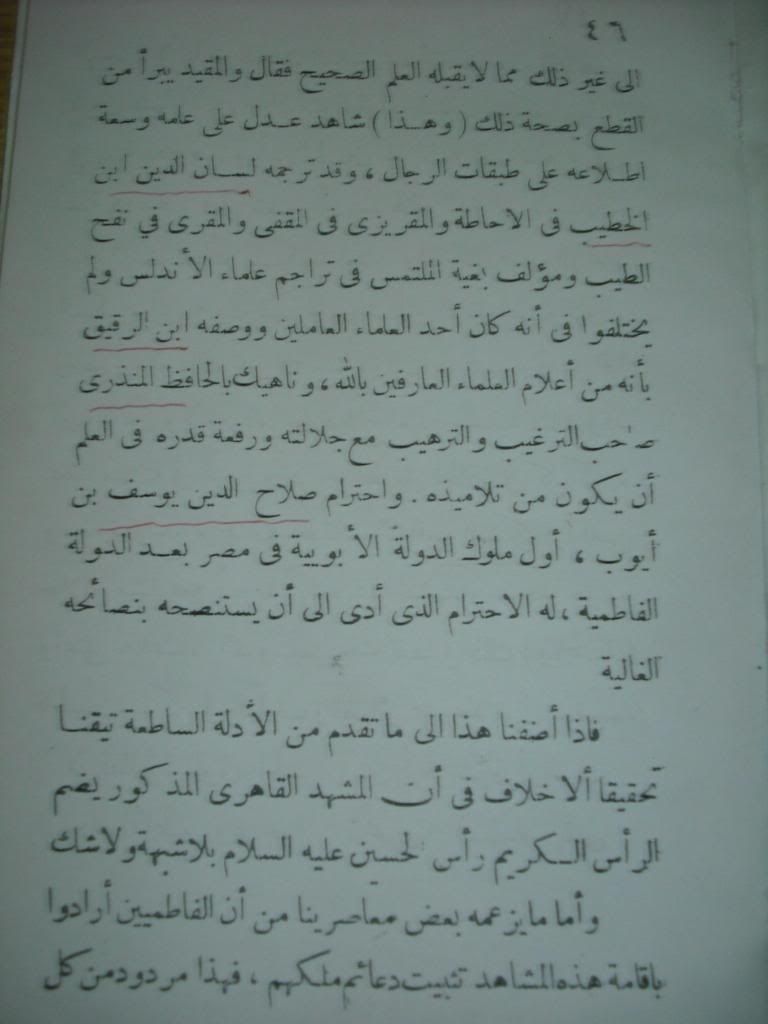 ٤٦
الى غير ذلك مما لا يقبله العلم الصحيح فقال والمقيد يبرأ من
القطع بصحة ذلك (وهـذا) شاهد عـدل على عامه وسعة
اطـلاعه على طبقات الرجال ، وقد ترجمه لسـان الدين ابن
الخطيب فى الاحاطة والمقريزى فى المقفى والمقرى في نفح
الطيب ومؤلف بغية الملتمس فى تراجم عاماء الأندلس ولم
يختلفوا فى أنه كان أحد العاماء العاملين ووصفه ابن الرقيق
بأنه من أعلام العلماء العارفين بالله، وناهيك بالحافظ المنذرى
صاحب الترغيب والترهيب مع جلالته ورفعة قدره فى العلم
أن يكون من تلاميذه . واحترام صلاح الدين يوسف بن
أيوب ، أول ملوك الدولة الأبوبية فى مصر بعـد الدولة
الفاطمية ، له الاحترام الذى أدى الى أن يستنصحه بنصائحه
الغالية
فاذا أضفنا هذا الى ماتقدم من الأدلة الساطعة تيقنـا
تحقيقا ألا خلاف فى أن المشهد القاهرى المذكور يضم
الرأس الـكريم رأس الحسين عليه السلام بلاشبهة ولاشك
وأما ما يزعمه بعض معاصرينا من أن الفاطميين أرادوا
باقامة هذه المشاهد تثبيت دعائم ملكهم ، فهذا مردود من كل